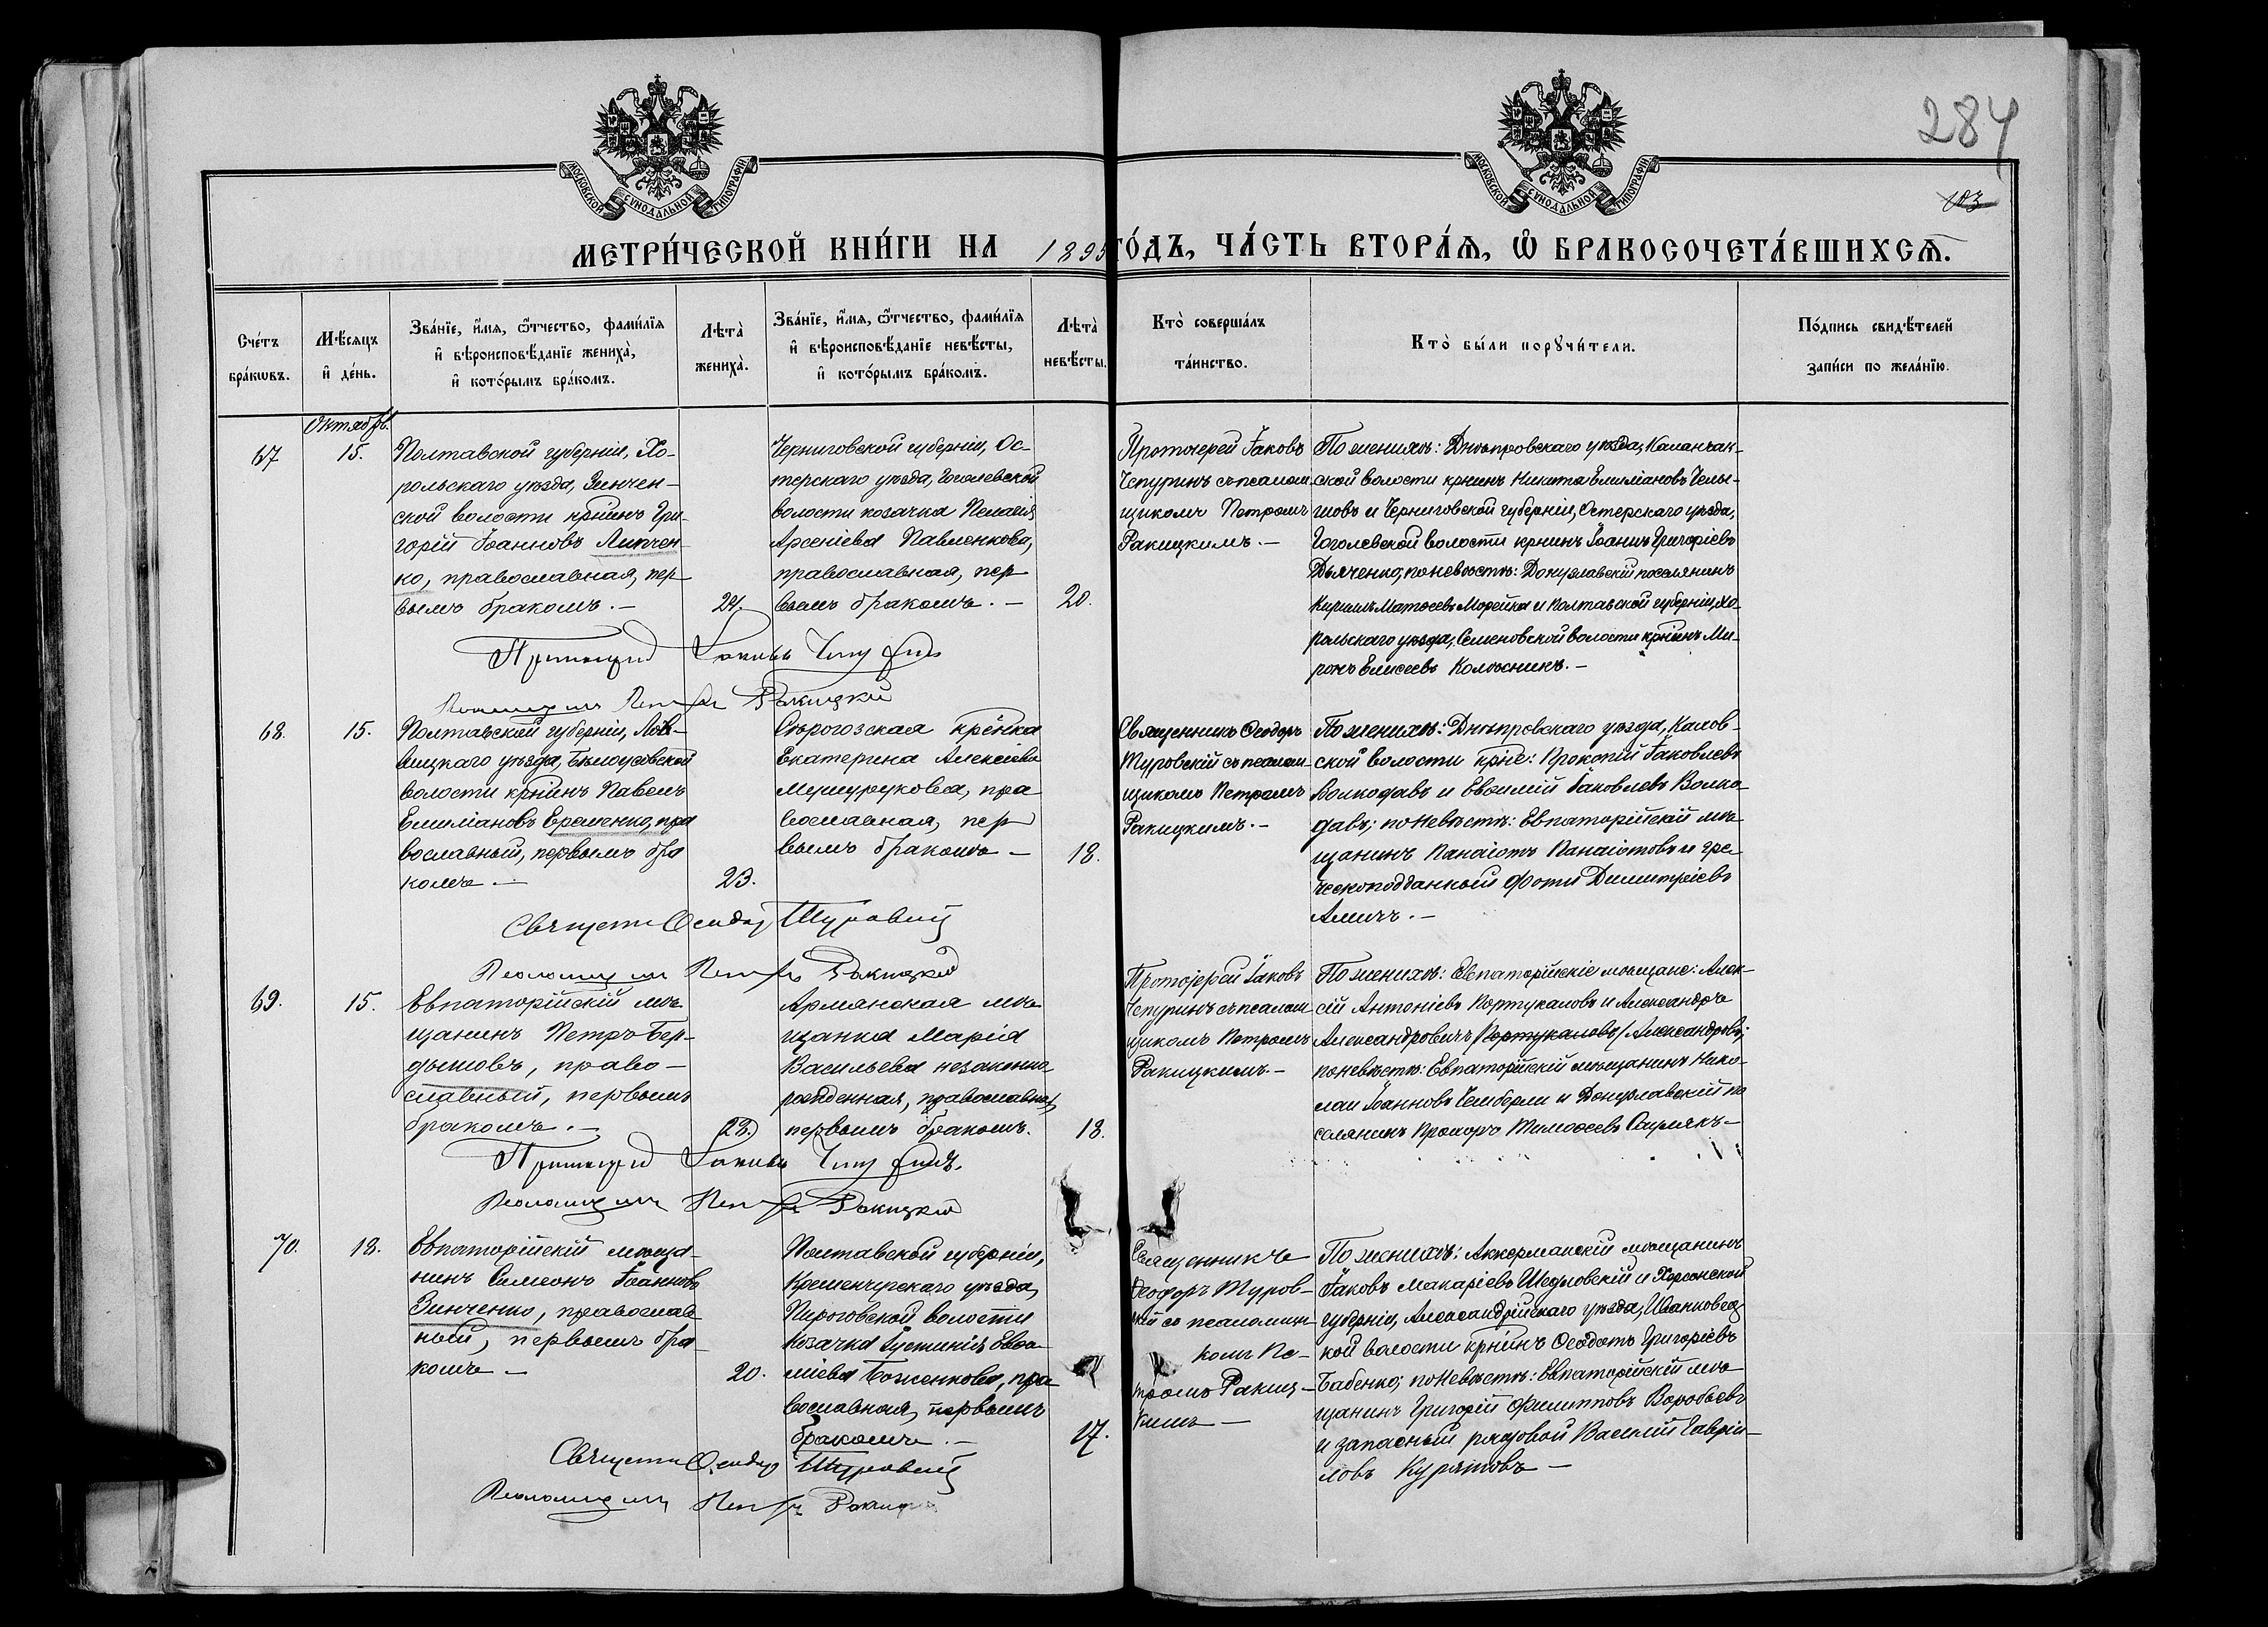 284
103
МОСКОВСКОЙ СУНОДАЛЬНОЙ ТИПОГРАФІИ
МОСКОВСКОЙ СУНОДАЛЬНОЙ ТИПОГРАФІИ
МЕТРИ́ЧЕСКОЙ КНИ́ГИ НА 1895 ГО́ДЪ, ЧА́СТЬ ВТОРА́Ѧ, Ѽ БРАКОСОЧЕТА́ВШИХСѦ.
Сче́тъ
бра́кѡвъ.
Мѣ́сяцъ
и҆ де́нь.
Зва́нїе, и҆́мя, ѻ҆́тчество, фами́лїя
и҆ вѣроисповѣ́данїе жениха̀,
и҆ кото́рымъ бра́комъ.
Лѣта̀
жениха̀.
Зва́нїе, и҆́мя, ѻ҆́тчество, фами́лїя
и҆ вѣроисповѣ́данїе невѣ́сты,
и҆ кото́рымъ бра́комъ.
Лѣта̀
невѣ́сты.
Кто̀ соверша́лъ
та́инство.
Кто̀ бы́ли порꙋчи́тели.
По́дпись свидѣ́телей
запи́си по жела́нїю.
Октябрь.
67
15.
Полтавской губерніи, Хо-
рольскаго уѣзда, Зинчен-
ской волости крнинъ Гри-
горій Іоанновъ Липчен-
ко, православная, пер-
вымъ бракомъ.-
24.
Черниговской губерніи, Ос-
терскаго уѣзда, Гоголевской
волости козачка Пелагія
Арсеніева Павленкова,
православная, пер
вымъ бракомъ.-
20.
Протоіерей Іаковъ
Чепуринъ съ псалом
щикомъ Петромъ
Ракицкимъ.-
По женихѣ: Днѣпровскаго уѣзда, Каланчак-
ской волости крнинъ Никита Емиліановъ Челы-
шовъ и Черниговской губерніи, Остерскаго уѣзда,
Гоголевской волости крнинъ Іоаннъ Григоріевъ
Дьяченко; по невѣстѣ: Донузлавскій поселянинъ
Кириллъ Матѳеевъ Морейка и Полтавской губерніи, Хо-
рольскаго уѣзда, Семеновской волости крнинъ Ми-
ронъ Елисеевъ Колѣсникъ.-
Протоіерей Іаковъ Чепуринъ
Псаломщикъ Петръ Ракицкій
68.
15.
Полтавской губерніи, Лох-
вицкаго уѣзда, Бѣлоусовской
волости крнинъ Павелъ
Емиліановъ Еременко, пра
вославный, первымъ бра
комъ.-
23.
Сѣрогозская крѐнка
Екатерина Алексіева
Мушуруковa, пра
вославная, пер
вымъ бракомъ-
18.
Священникъ Ѳеодоръ
Туровскій съ псалом-
щикомъ Петромъ
Ракицкимъ.-
По женихѣ: Днѣпровскаго уѣзда, Каков-
ской волости крне: Прокопій Іаковлевъ
Волкодавъ и Евѳимій Іаковлевъ Волко-
давъ; по невѣстѣ: Евпаторійскій мѣ-
щанинъ Панаіотъ Панаіотовъ и гре-
ческоподданный Фоти Димитріевъ
Священ Ѳеодоръ Туровскій
Псаломщикъ Петръ Ракицкій
69.
15.
Евпаторійскій мѣ-
щанинъ Петръ Бер-
дышовъ, право-
славный, первымъ
бракомъ.-
28.
Армянская мѣ-
щанка Марія
Васильева незаконно
рожденная, православная,
первымъ бракомъ.
18.
Протоіерей Іаковъ
Чепуринъ съ псалом
щикомъ Петромъ
Ракицкимъ-
По женихѣ: Евпаторійскіе мѣщане: Алек-
сій Антоніевъ Портукаловъ и Александръ
Александровичъ /Портукаловъ/ Александровъ;
по невѣстѣ: Евпаторійскій мѣщанинъ Нико-
лай Іоанновъ Чембарли и Донузлавскій по
селянинъ Прохоръ Тимоѳеевъ
Протоіерей Іаковъ Чепуринъ.
Псаломщикъ Петръ Ракицкій
70.
18.
Евпаторійскій мѣща-
нинъ Симеонъ Іоанновъ
Зинченко, православ
ный, первымъ бра-
комъ-
20.
Полтавской губерніи,
Кременчугскаго уѣзда,
Пироговской волости
козачка Іустинія Евѳи-
міева Боженкова, пра
вославная, первымъ
бракомъ.-
17.
Священникъ
Ѳеодоръ Туров-
скій со псаломщи-
комъ Пе-
тромъ Ракиц-
кимъ-
По женихѣ: Аккерманскій мѣщанинъ
Іаковъ Макаріевъ Шедловскій и Херсонской
губерніи, Александрійскаго уѣзда, Ивановс-
кой волости крнинъ Ѳеодотъ Григоріевъ
Бабенко; по невѣстѣ: Евпаторійскій мѣ-
щанинъ Григорій Филипповъ Воробьевъ
и запасный рядовой Василій Гаврии-
ловъ Курятовъ-
Священ Ѳеодоръ Туровскій
Псаломщикъ Петръ Ракицкій